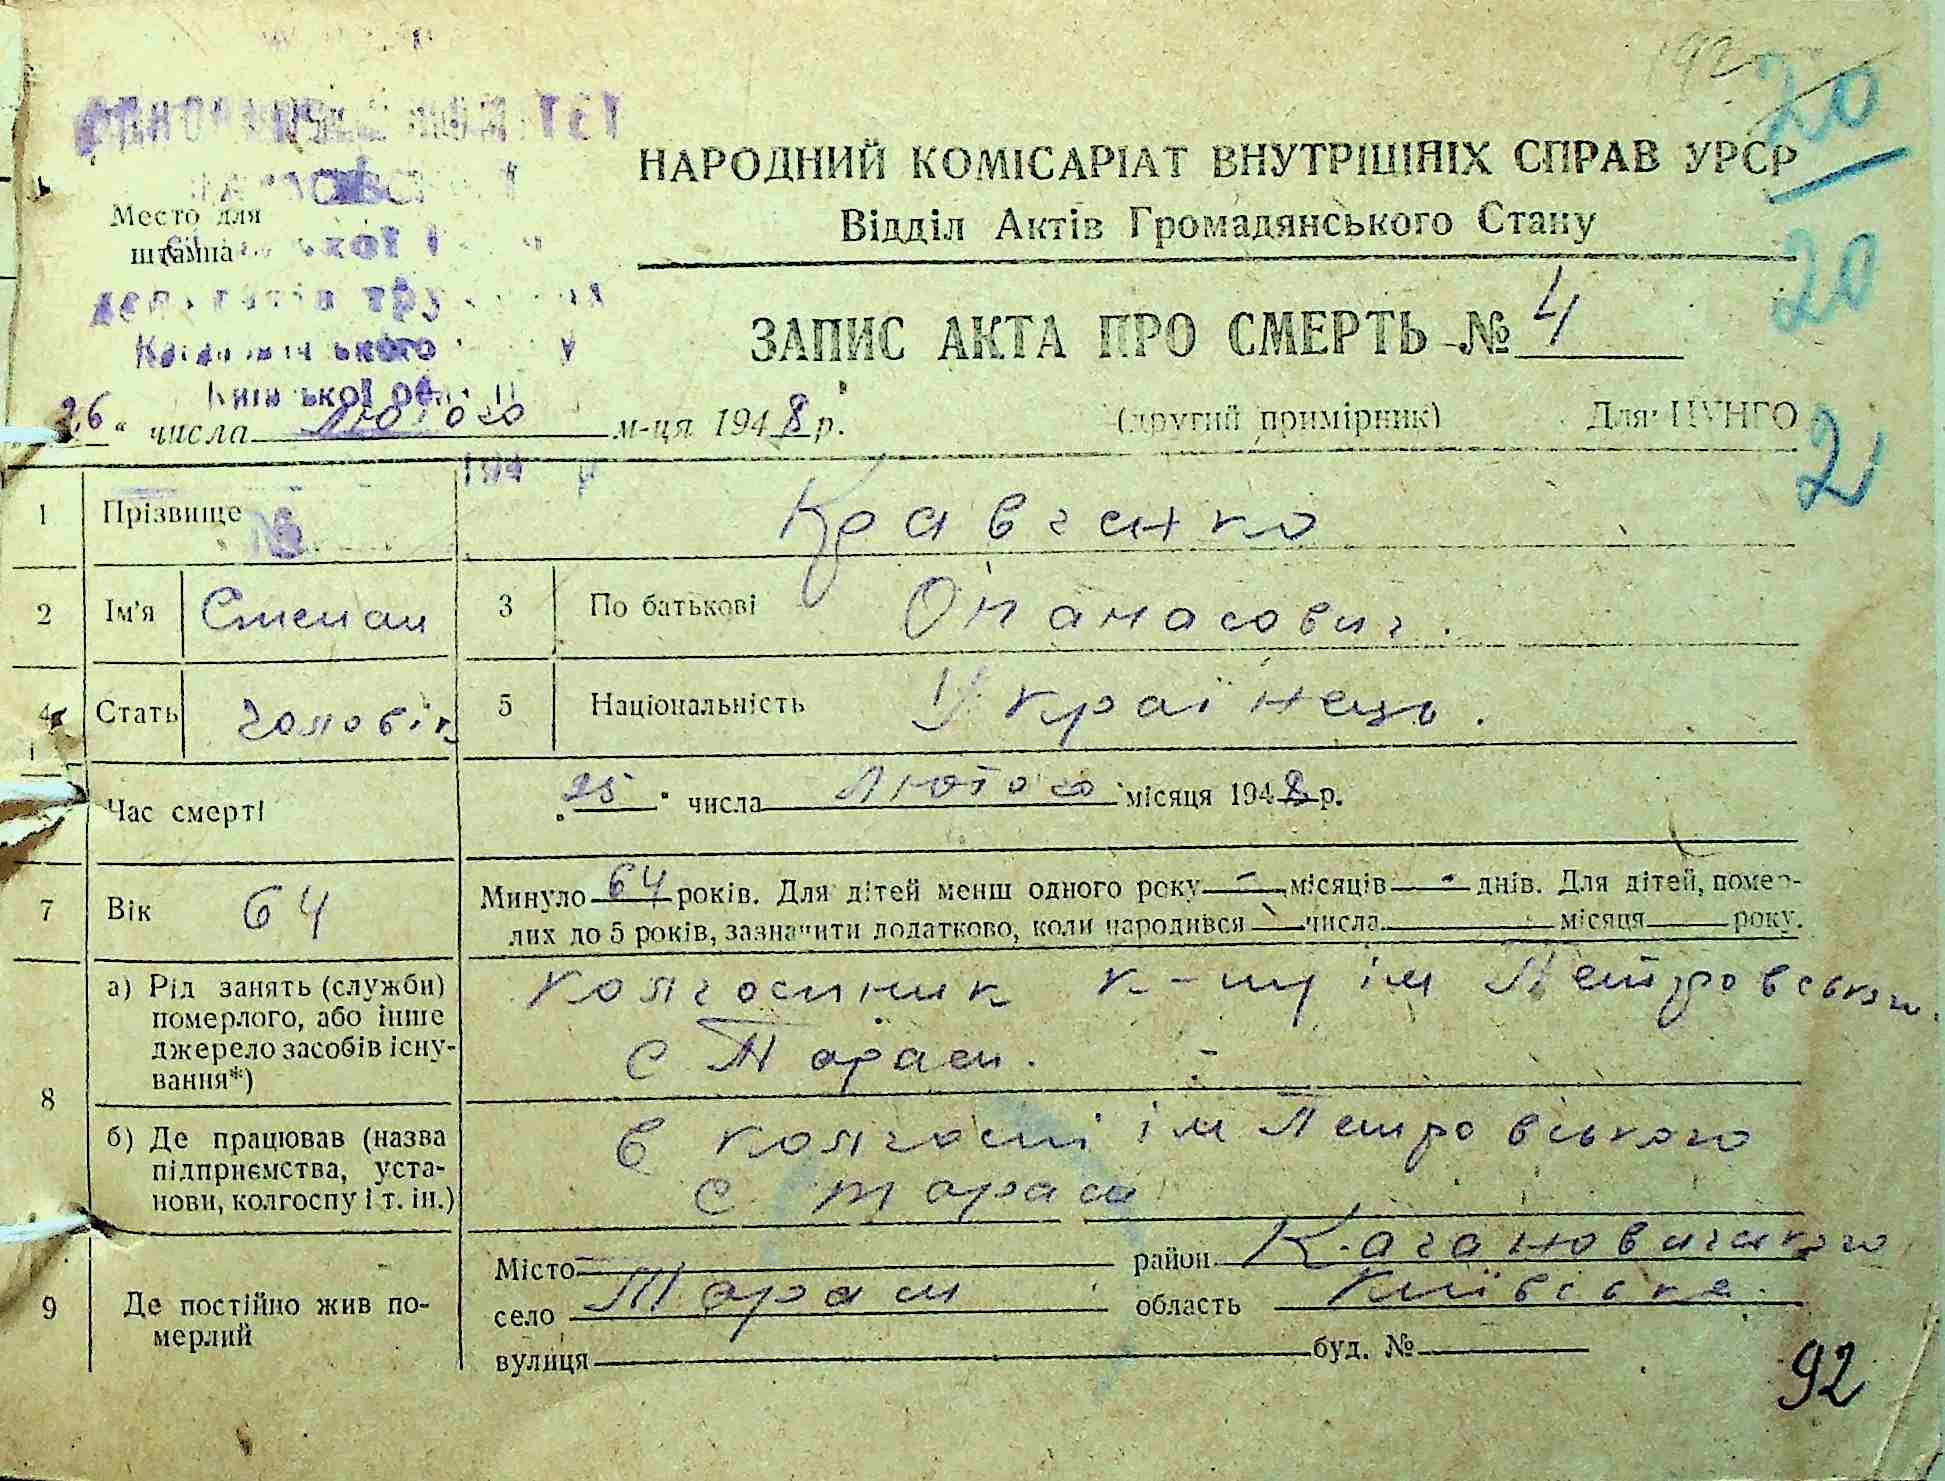 192
20
НАРОДНИЙ КОМІСАРІАТ ВНУТРІШНІХ СПРАВ УРСР
Відділ Актів Громадянського Стану
Место для
штампа
20
депутатів
ЗАПИС АКТА ПРО СМЕРТЬ № 4
Київської
26 " числа лютого м-ця 1948 р.
(другий примірник) Для ЦУНГО
2
194 р
№
1 Прізвище Кравченко
2 Ім'я Степан 3 По батькові Опанасович.
4 Стать чоловік 5 Національність Українець.
Час смерті 25 " числа лютого місяця 1948 р.
7 Вік 64 Минуло 64 років. Для дітей менш одного року - місяців - днів. Для дітей, помер-
лих до 5 років, зазначити додатково, коли народився числа місяця року.
8 а) Рід занять (служби)
померлого, або інше
джерело засобів існу-
вання*)
колгоспник к-пу ім Петровського
с Тараси.
б) Де працював (назва
підприємства, уста-
нови, колгоспу і т. ін.)
в колгоспі ім Петровського
с Тараси
9 Де постійно жив по-
мерлий
Місто район Кагановичського
село Тараси область Київська.
вулиця буд. №
92